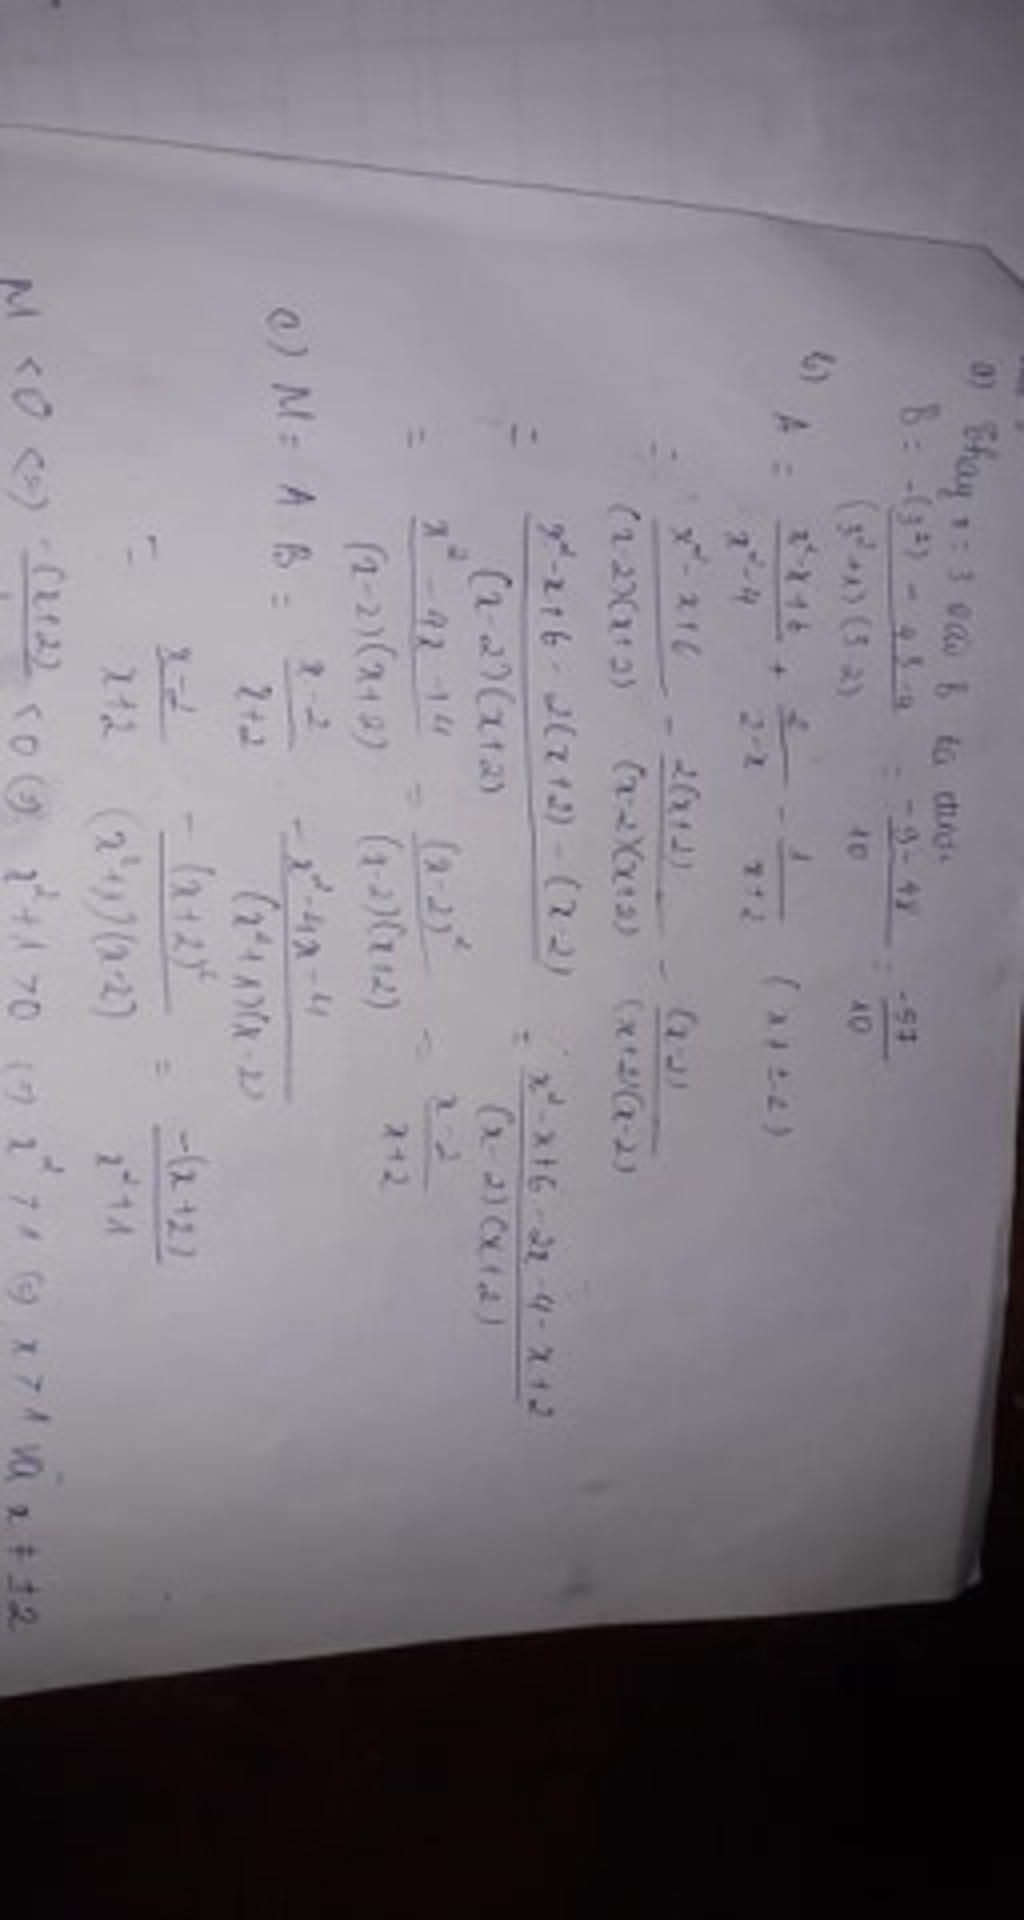 a) Thay x = 3 vào B ta được
B = -(3²) - 4.3-4 / (3²+1)(3-2) = -9-48 / 10 = -57 / 10
b) A = x²-x+6 / x²-4 + 2 / 2-x - 1 / x+2 (x ≠ ±2)
= x²-x+6 / (x-2)(x+2) - 2(x+2) / (x-2)(x+2) - (x-2) / (x+2)(x-2)
= x²-x+6-2(x+2)-(x-2) / (x-2)(x+2) = x²-x+6-2x-4-x+2 / (x-2)(x+2)
= x²-4x+4 / (x-2)(x+2) = (x-2)² / (x-2)(x+2) = x-2 / x+2
c) M = A . B = x-2 / x+2 . -x²-4x-4 / (x²+1)(x-2)
= x-2 / x+2 . -(x+2)² / (x²+1)(x-2) = -(x+2) / x²+1
M < 0 <=> -(x+2) < 0 <=> x²+1 > 0 <=> x² > 1 <=> x > 1 và x ≠ ±2